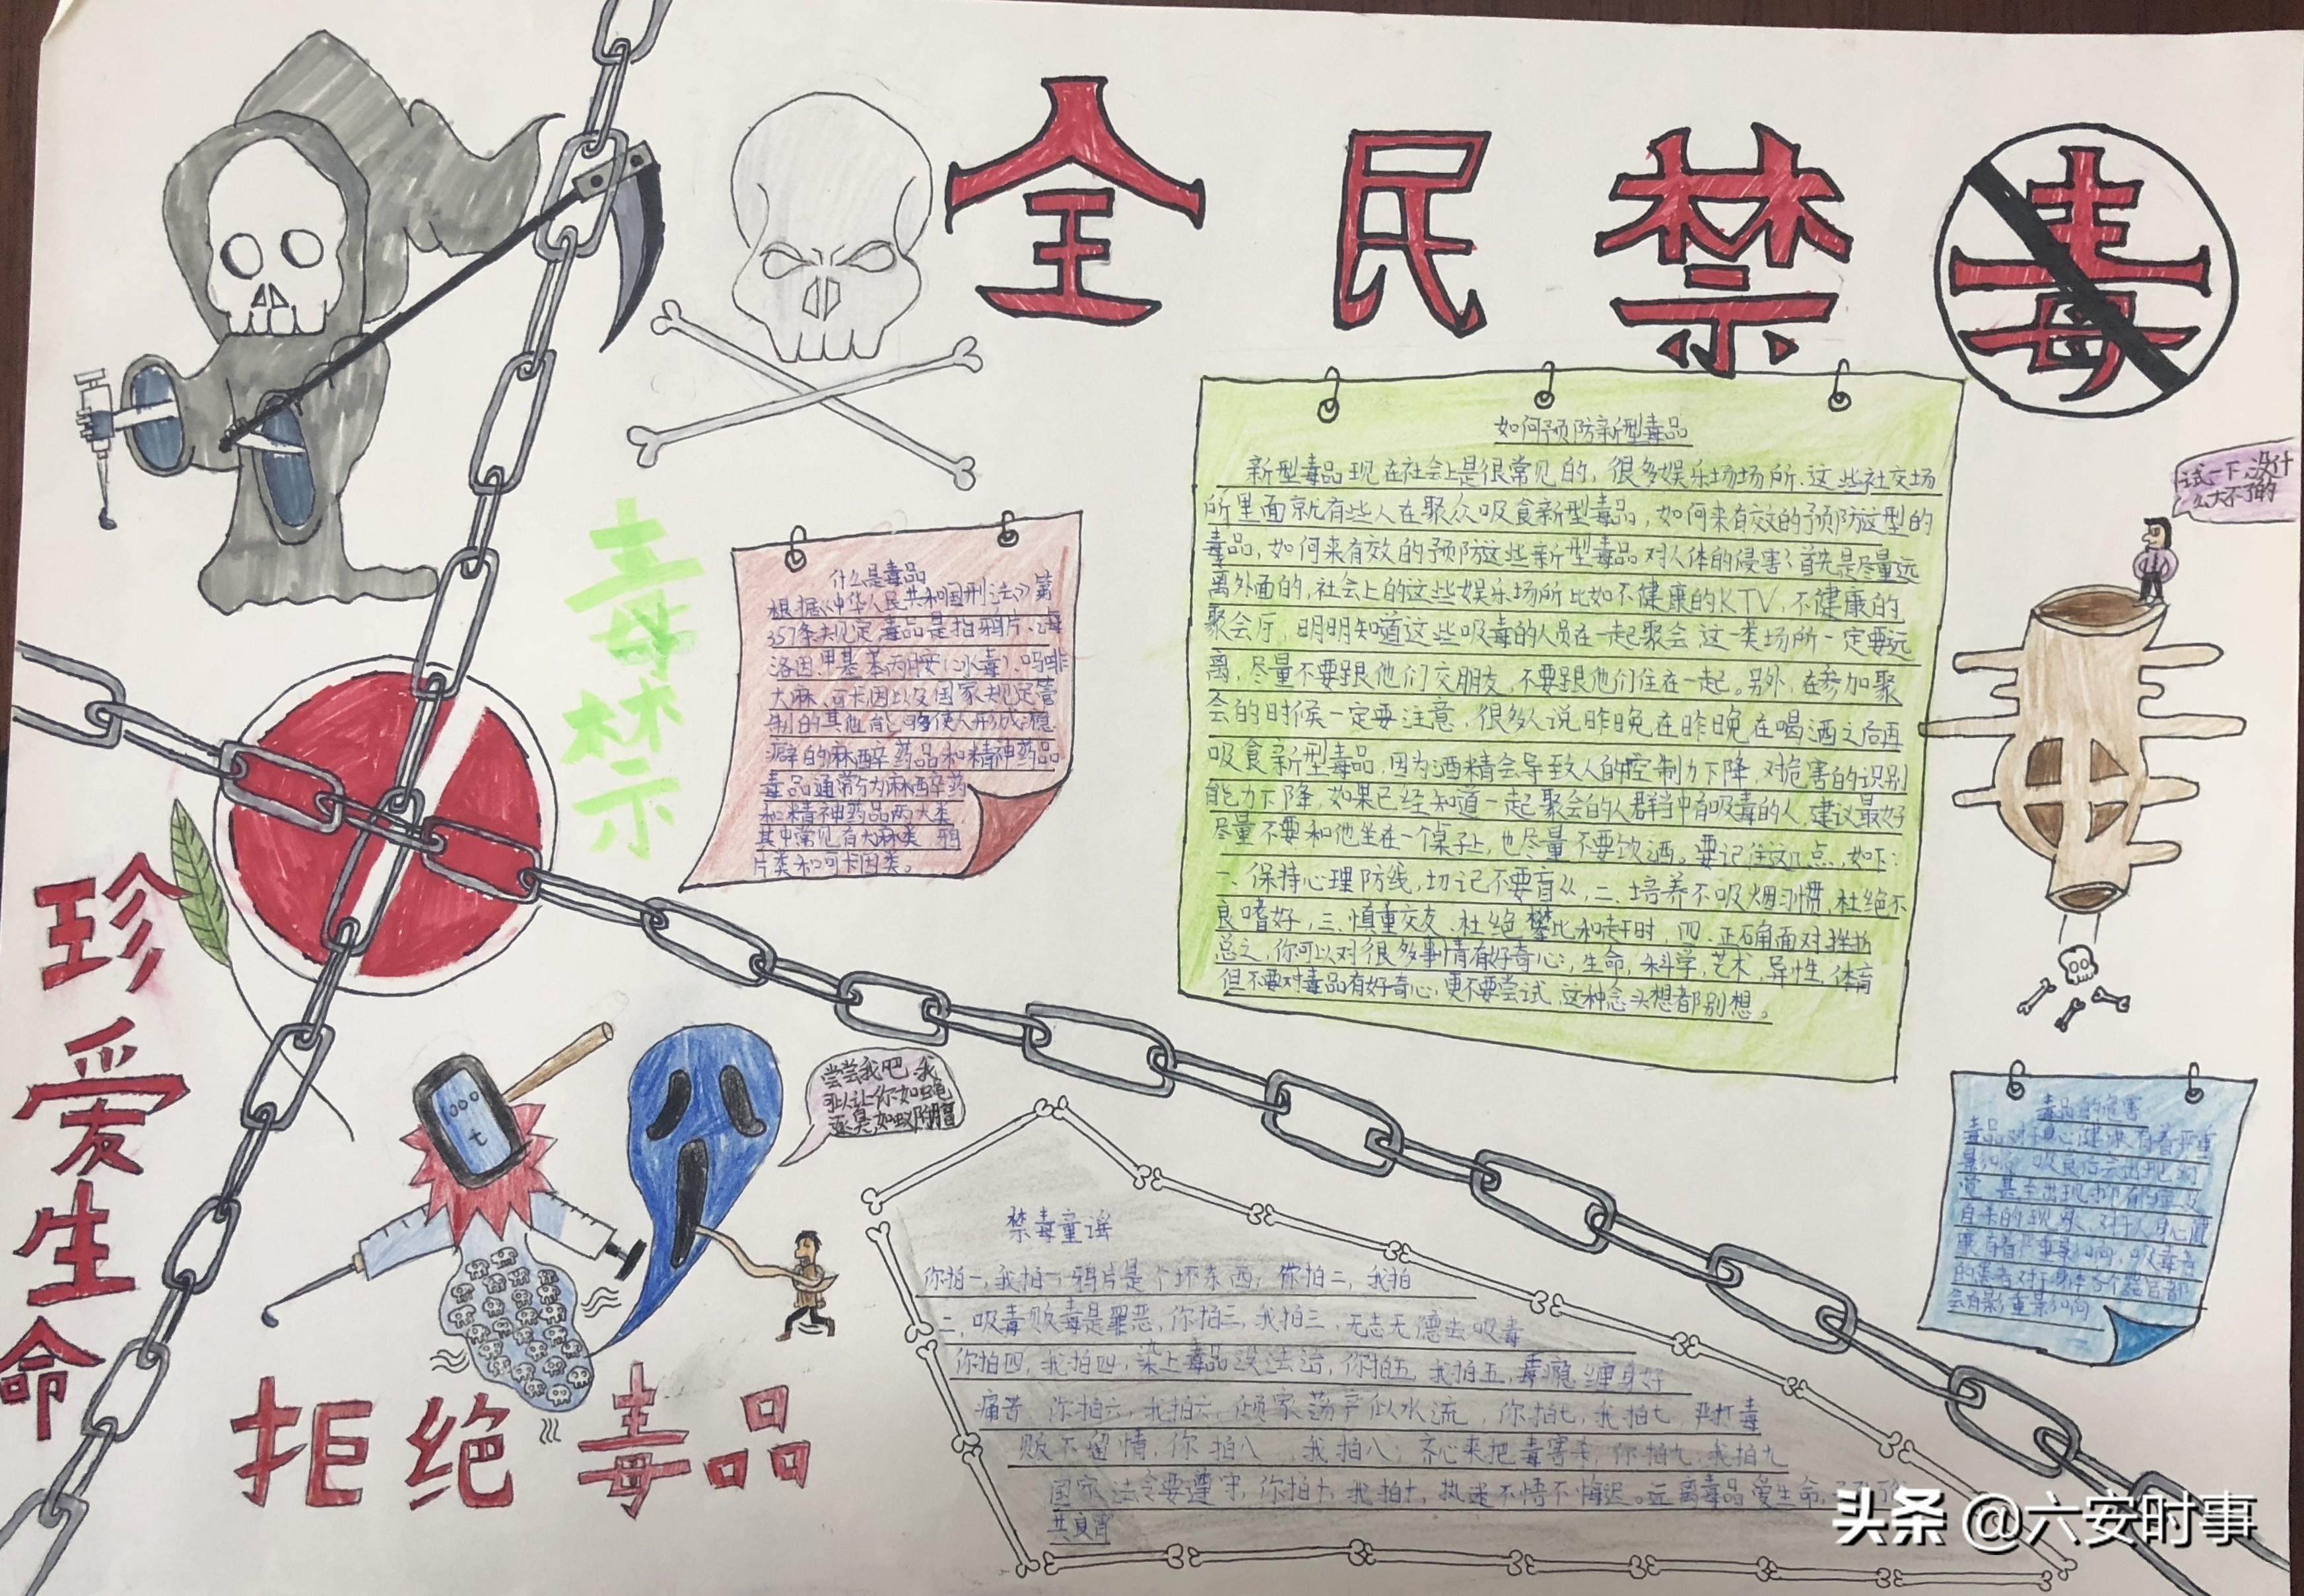 全民禁毒
毒禁
珍爱生命
拒绝毒品
什么是毒品
根据《中华人民共和国刑法》第
357条规定毒品是指鸦片、海
洛因、甲基苯丙胺(冰毒)、吗啡
大麻、可卡因以及国家规定管
制的其他能够使人形成瘾
癖的麻醉药品和精神药品
毒品通常分为麻醉药
和精神药品两大类
其中常见有大麻类 鸦
片类和可卡因类。
如何预防新型毒品
新型毒品现在社会上是很常见的，很多娱乐场场所、这些社交场
所里面就有些人在聚众吸食新型毒品，如何来有效的预防这型的
毒品，如何来有效的预防这些新型毒品对人体的侵害？首先是尽量远
离外面的，社会上的这些娱乐场所比如不健康的KTV，不健康的
聚会厅，明明知道这些吸毒的人员在一起聚会 这一类场所一定要远
离，尽量不要跟他们交朋友，不要跟他们住在一起。另外，在参加聚
会的时候一定要注意，很多人说昨晚在昨晚在喝酒之后再
吸食新型毒品，因为酒精会导致人的控制力下降，对危害的识别
能力下降，如果已经知道一起聚会的人群当中有吸毒的人，建议最好
尽量不要和他坐在一个桌子上，也尽量不要饮酒。要记住这几点，如下：
一、保持心理防线，切记不要盲从，二、培养不吸烟习惯，杜绝不
良嗜好，三、慎重交友、杜绝攀比和赶时，四、正确面对挫折
总之，你可以对很多事情有好奇心：，生命，科学，艺术，异性，体育
但不要对毒品有好奇心，更不要尝试，这种念头想都别想。
试一下，没什
么大不了的
尝尝我吧，我
可以让你如蝇
逐臭，如蚁附膻
毒品的危害
自杀的现象，对于人身心健
康有着严重影响，吸毒者
会有影重影响
禁毒童谣
你拍一，我拍一，鸦片是个坏东西，你拍二，我拍
二，吸毒贩毒是罪恶，你拍三，我拍三，无志无德去吸毒
你拍四，我拍四，染上毒品没法治，你拍五，我拍五，毒瘾缠身好
痛苦，你拍六，我拍六，倾家荡产似水流，你拍七，我拍七，严打毒
贩不留情，你拍八，我拍八，齐心来把毒害杀，你拍九，我拍九
国家法令要遵守，你拍十，我拍十，执迷不悟不悔迟。远离毒品爱生命，
头条 @六安时事